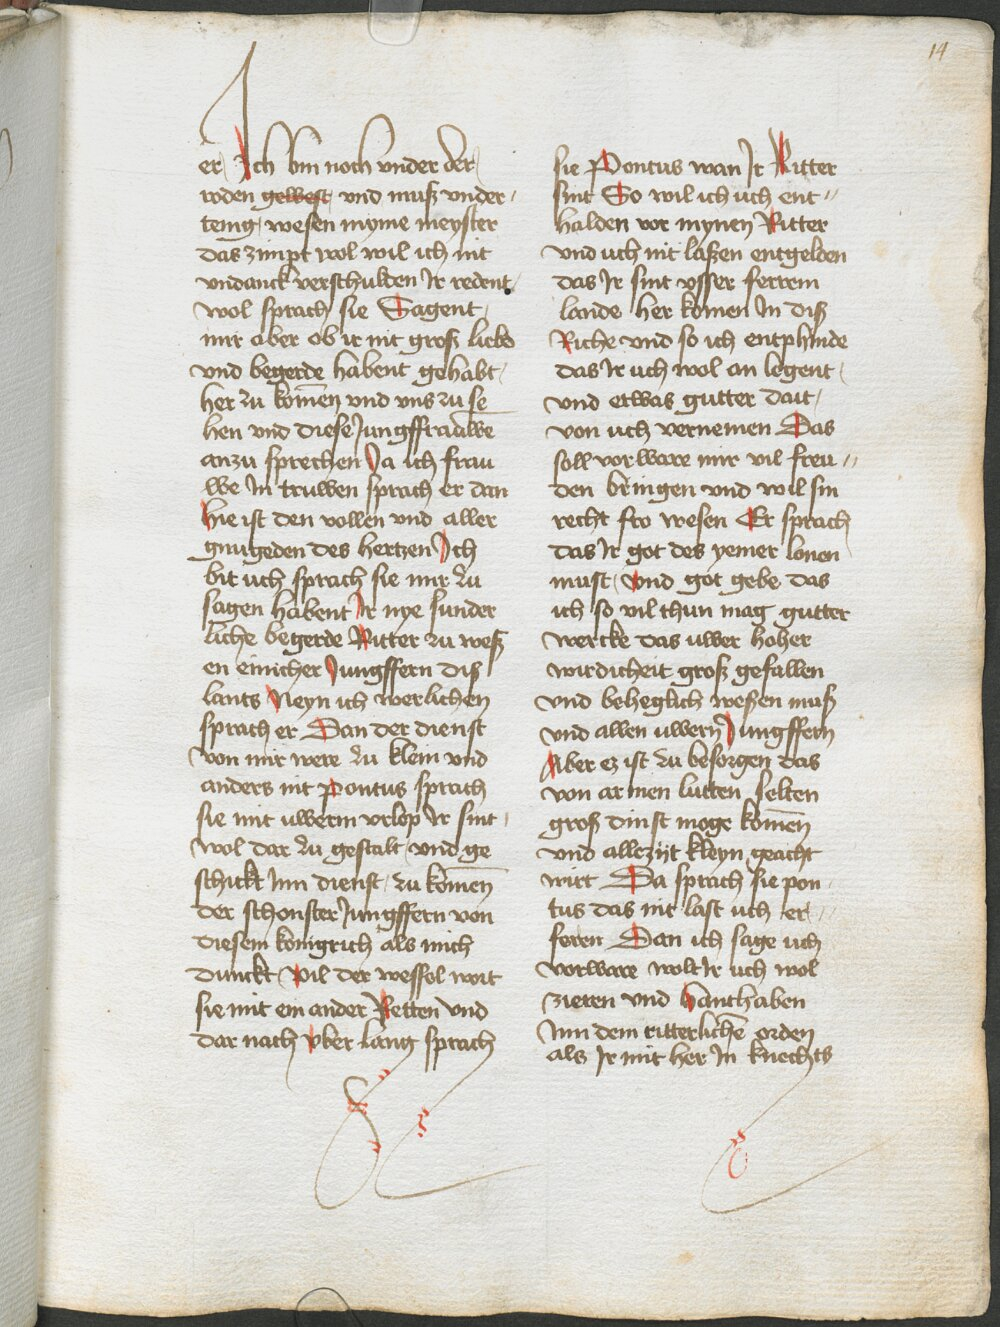 14
er Ich bin noch vnder der
roden gewest vnd muß vnder
tenig wesen myme meyster
das zimpt wol wil ich nit
vndanck verschulden Ir redent
wol sprach sie Sagent
mir aber ob ir nit groß liebd
vnd begerde habent gehabt
her zu komen vnd vns zu se
hen vnd diese Jungffrauwe
anzu sprechen Ja ich frau
we In truwen sprach er dan
hie ist den vollen vnd aller
gnugeden des hertzen Ich
bit uch sprach sie mir zu
sagen habent Ir nye sunder
liche begerde Ritter zu weß
en einicher Jungffern diß
lants Neyn ich werlichen
sprach er Dan der dienst
von mir were zu klein vnd
anders nit Pontus sprach
sie mit uwerm vrlop Ir sint
wol dar zu gestalt vnd ge
schickt Inn dienst zu komen
der schonster Jungffern von
diesem konigrich als mich
dunckt Vil der wessel wort
sie mit ein ander Retten vnd
dar nach vber lang sprach
sie Pontus wan Ir Ritter
sint So wil ich uch ent
halden vor mynen Ritter
vnd uch nit laßen entgelden
das Ir sint vsser ferrem
lande her komen In diß
Riche vnd so ich entphinde
das Ir uch wol an legent
vnd etwas gutter dait
von uch vernemen Das
soll vorware mir vil freu
den bringen vnd wil sin
recht fro wesen Er sprach
das Ir got des yemer lonen
must Vnd got gebe das
ich so vil thun mag gutter
wercke das uwer hoher
wirdicheit groß gefallen
vnd beheglich weßen muß
vnd allen uwern Jungffern
Aber ez ist zu besorgen das
von armen lutten selten
groß dinst moge komen
vnd allezijt kleyn geacht
wirt Da sprach sie pon
tus das nit last uch er
feren Dan ich sage uch
vorware wolt Ir uch wol
zieren vnd hanthaben
Inn dem ritterliche orden
als Ir mit her In knechts